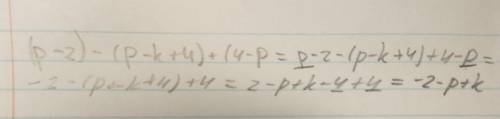 (p-2)-(p-k+4)+(4-p = p-2-(p-k+4)+4-p =
-2-(p-k+4)+4 = 2-p+k-4+4 = -2-p+k